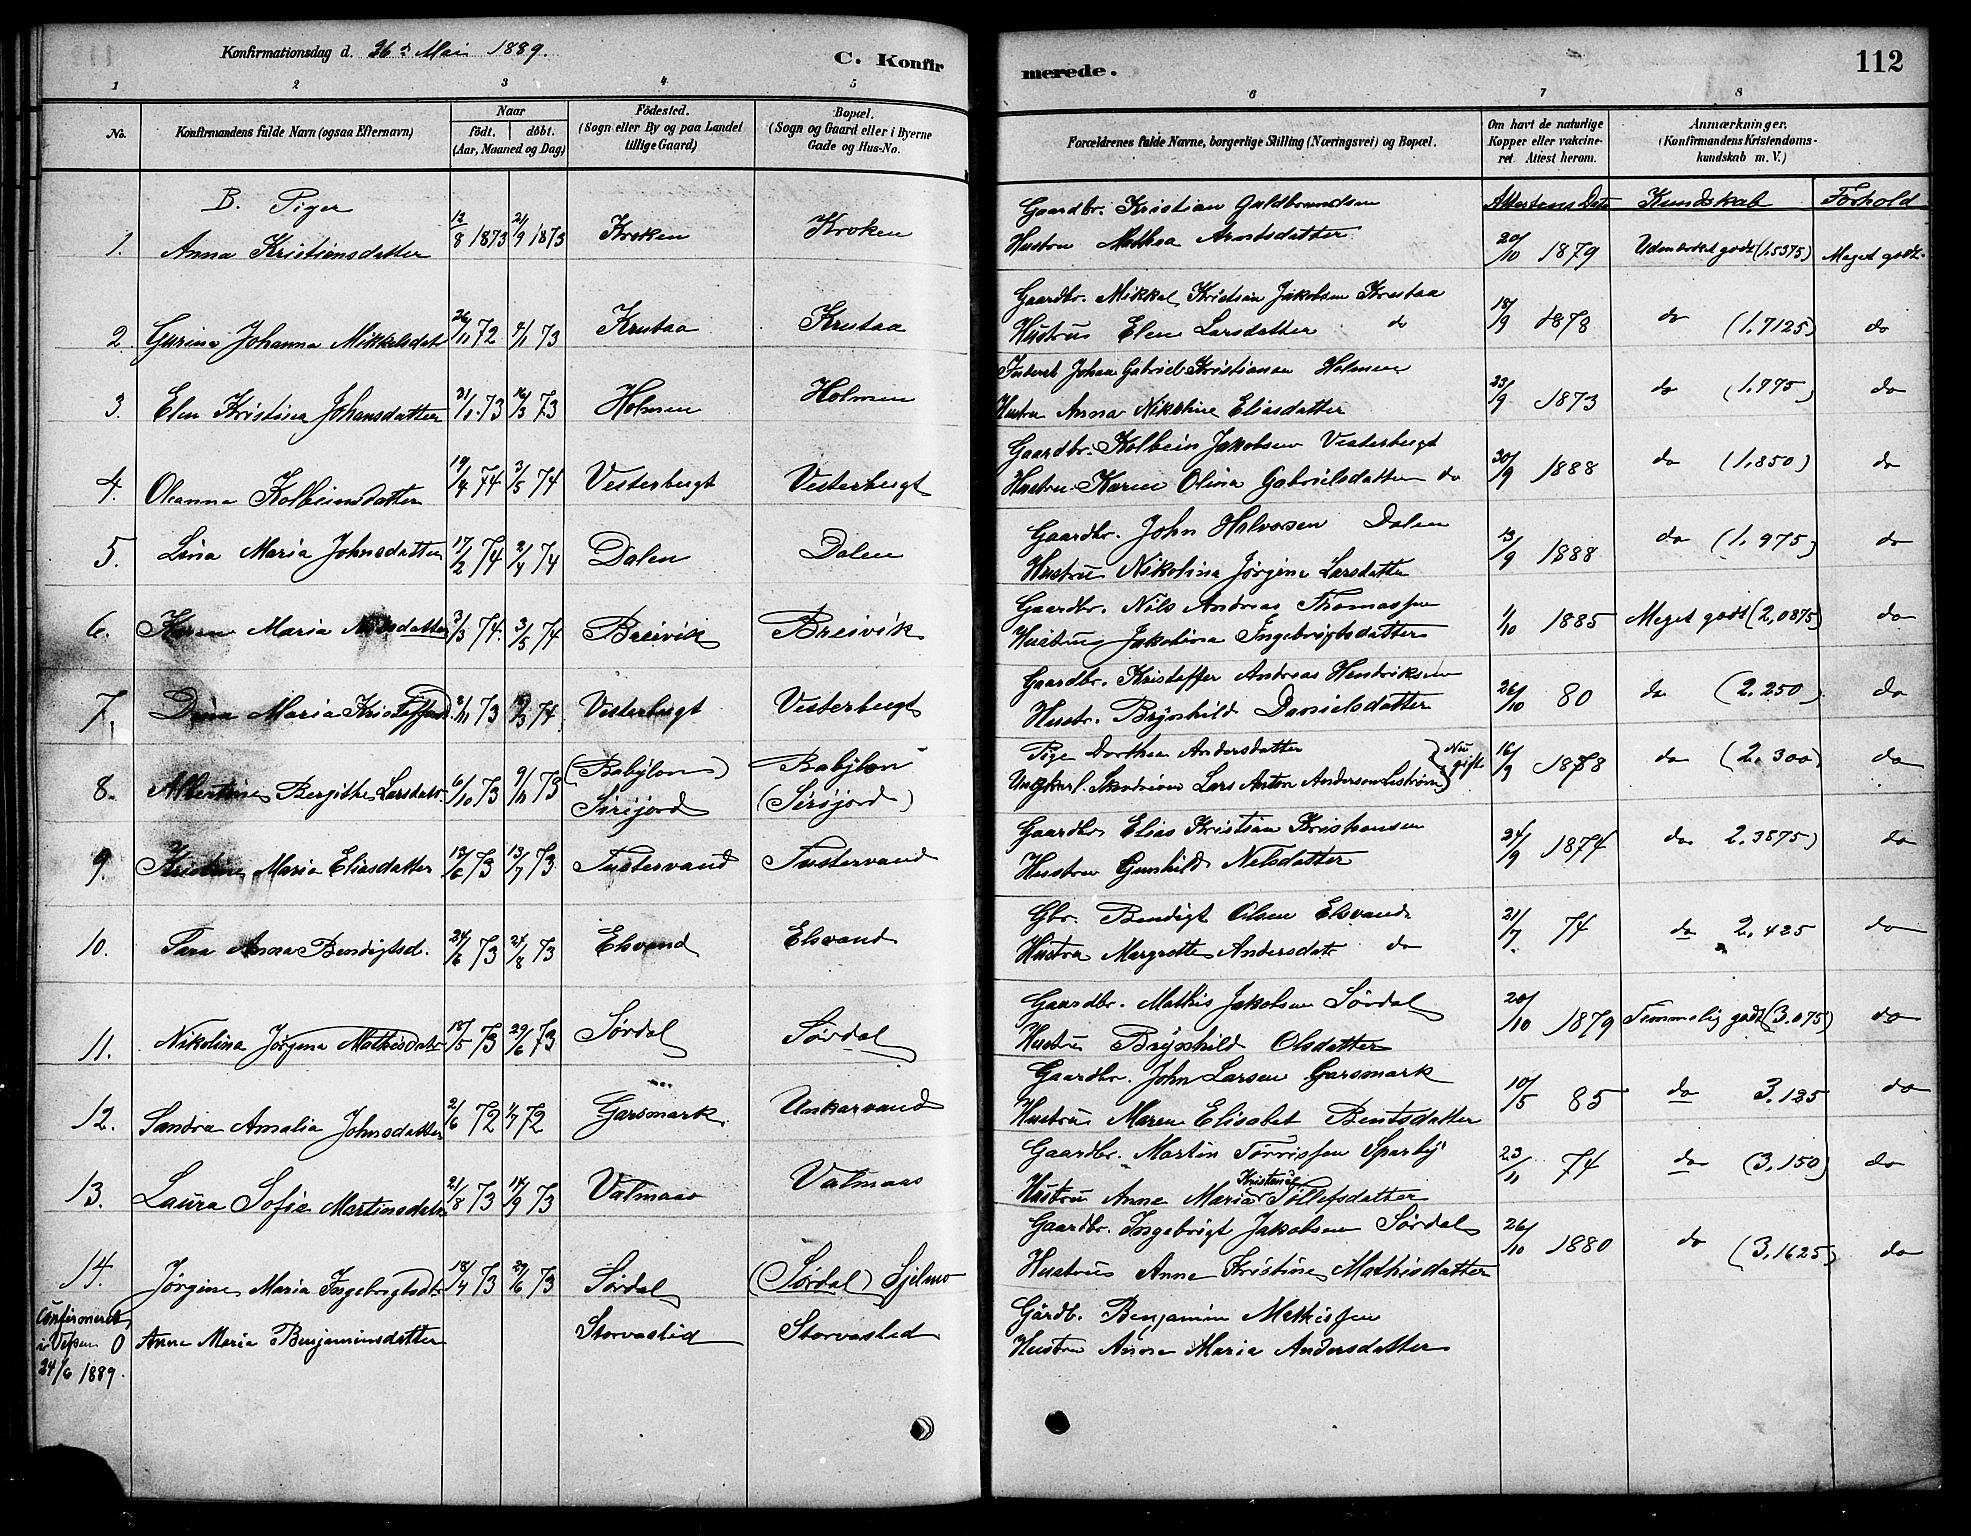 Konfirmationsdag d. 26de Mai 1889.
C. Konfirmerede.
112
1 2 3 4 5 6 7 8
No.
Konfirmandens fulde Navn (ogsaa Efternavn)
Naar
födt. döbt.
(Aar, Maaned og Dag)
Födested.
(Sogn eller By og paa Landet
tillige Gaard)
Bopæl.
(Sogn og Gaard eller i Byerne
Gade og Hus-No.
Forældrenes fulde Navne, borgerlige Stilling (Næringsvei) og Bopæl.
Om havt de naturlige
Kopper eller vakcine-
ret Attest herom.
Anmærkninger,
(Konfirmandens Kristendoms-
kundskab m. V.)
Attestens Date Kundskab Forhold
B. Piger
1. Anna Kristiansdatter 12/8 1873 21/9 1873 Kroken Kroken
Gaardbr. Kristian Guldbrandsen
Hustru Mathea Arntsdatter 20/10 1879 Udmærket godt (1,5375) Meget godt
2. Gurina Johanna Mikkelsdat 26/11 72 6/1 73 Krutaa Krutaa
Gaardbr. Mikkal Kristian Jakobsen Krutaa
Hustru Elen Larsdatter do 18/9 1878 do (1,7125) do
3. Elen Kristina Johansdatter 21/1 73 16/3 73 Holmen Holmen
Inderst Johan Gabriel Kristiansen Holmen
Hustru Anna Nikoline Eliasdatter 23/9 1873 do (1,775) do
4. Oleanna Kolbeinsdatter 19/4 74 3/5 74 Vesterbugt Vesterbugt
Gaardbr. Kolbein Jakobsen Vesterbugt
Hustru Karen Olivia Gabrielsdatter do 30/9 1888 do (1,850) do
5. Lina Maria Johnsdatter 17/2 74 2/4 74 Dalen Dalen
Gaardbr. John Halvorsen Dalen
Hustru Nikolina Jørgine Larsdatter 13/9 1888 do (1,975) do
6. Karen Maria Nilsdatter 3/3 74. 3/5 74 Breivik Breivik
Gaardbr. Nils Andreas Thomassen
Hustru Jakobina Ingebrigtsdatter 1/10 1885 Meget godt (2,0875) do
7. Dina Maria Kristoffersd 2/11 73 74. Vesterbugt Vesterbugt
Gaardbr. Kristoffer Andreas Hendriksen
Hustr. Brynhild Danielsdatter 26/10 80 do (2,250) do
8. Albertine Bergithe Larsdatr 6/10 73 9/11 73 (Babylon) Sirijord Babylon (Sirijord)
Pige Dorthea Andersdatter
Ungkarl. Skrædder Lars Anton Andersen } Nu gift 16/9 1878 do (2,300) do
9. Kristine Maria Eliasdatter 12/6 73 13/7 73 Tustervand Tustervand
Gaardbr. Elias Kristian Kristiansen
Hustru Gunhild Nilsdatter 24/9 1874 do 2,3875) do
10. Sara Anna Bendigtsd. 24/6 73 24/8 73 Elsvand Elsvand
Gbr. Bendigt Olsen Elsvand
Hustru Margrethe Andersdatr do 21/7 74 do 2,425 do
11. Nikolina Jørgina Mathisdatr 18/5 73 29/6 73 Sørdal Sørdal
Gaardbr. Mathis Jakobsen Sørdal
Hustru Brynhild Olsdatter 20/10 1879 Temmelig godt (3,075) do
12. Sandra Amalia Johnsdatter 2/6 72 1/7 72 Garsmark Unkarvand
Gaardbr. John Larsen Garsmark
Hustru Maren Elisabet Bentsdatter 10/5 85 do 3,125 do
13. Laura Sofie Martinsdatr 21/8 73 14/9 73 Valmaas Valmaas
Gaardbr. Martin Torrissen Sparby
Hustru Anne Maria Kristine Tollefsdatter 23/11 74 do (3,150) do
14. Jørgine Maria Ingebrigtsdtr 18/4 73 29/6 73 Sørdal (Sørdal) Sjelmo
Gaardbr. Ingebrigt Jakobsen Sørdal
Hustru Anne Kristine Mathisdatter 26/10 1880 do (3,1625) do
Confirmeret
i Vefsen 0
24/6 1889.
Anne Maria Benjaminsdatter Storvastid Storvastid
Gårdb. Benjamin Mathissen
Hustru Anna Maria Andersdatter